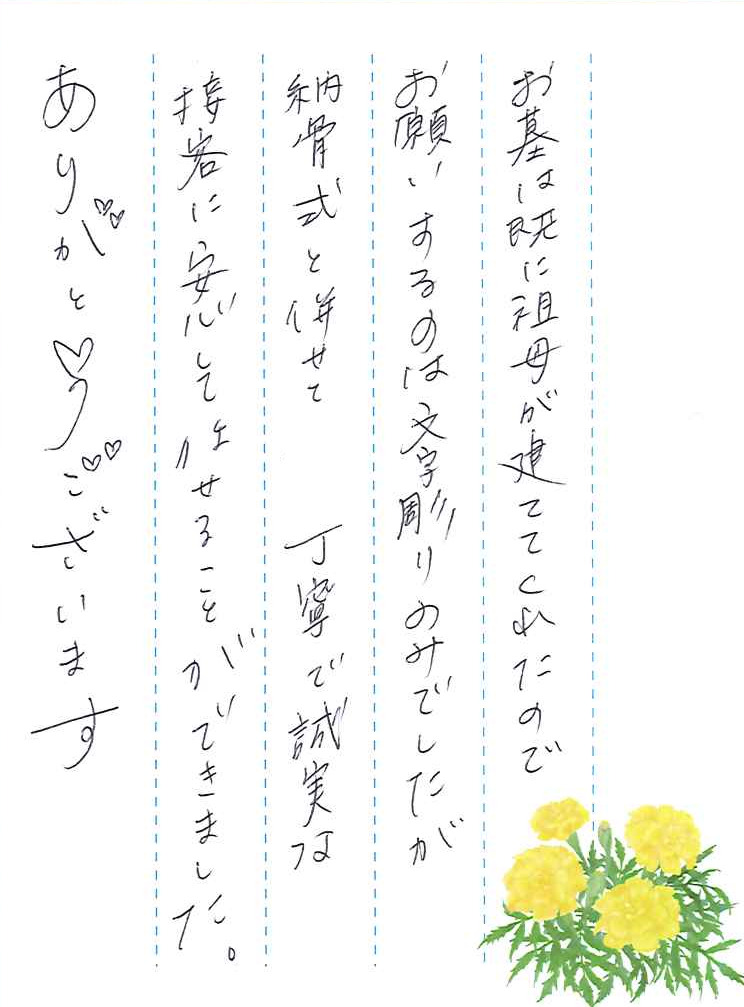 お墓は既に祖母が建ててくれたので
お願いするのは文字彫りのみでしたが
納骨式と併せて 丁寧で誠実な
接客に安心して任せることができました。
ありがと♡うございます